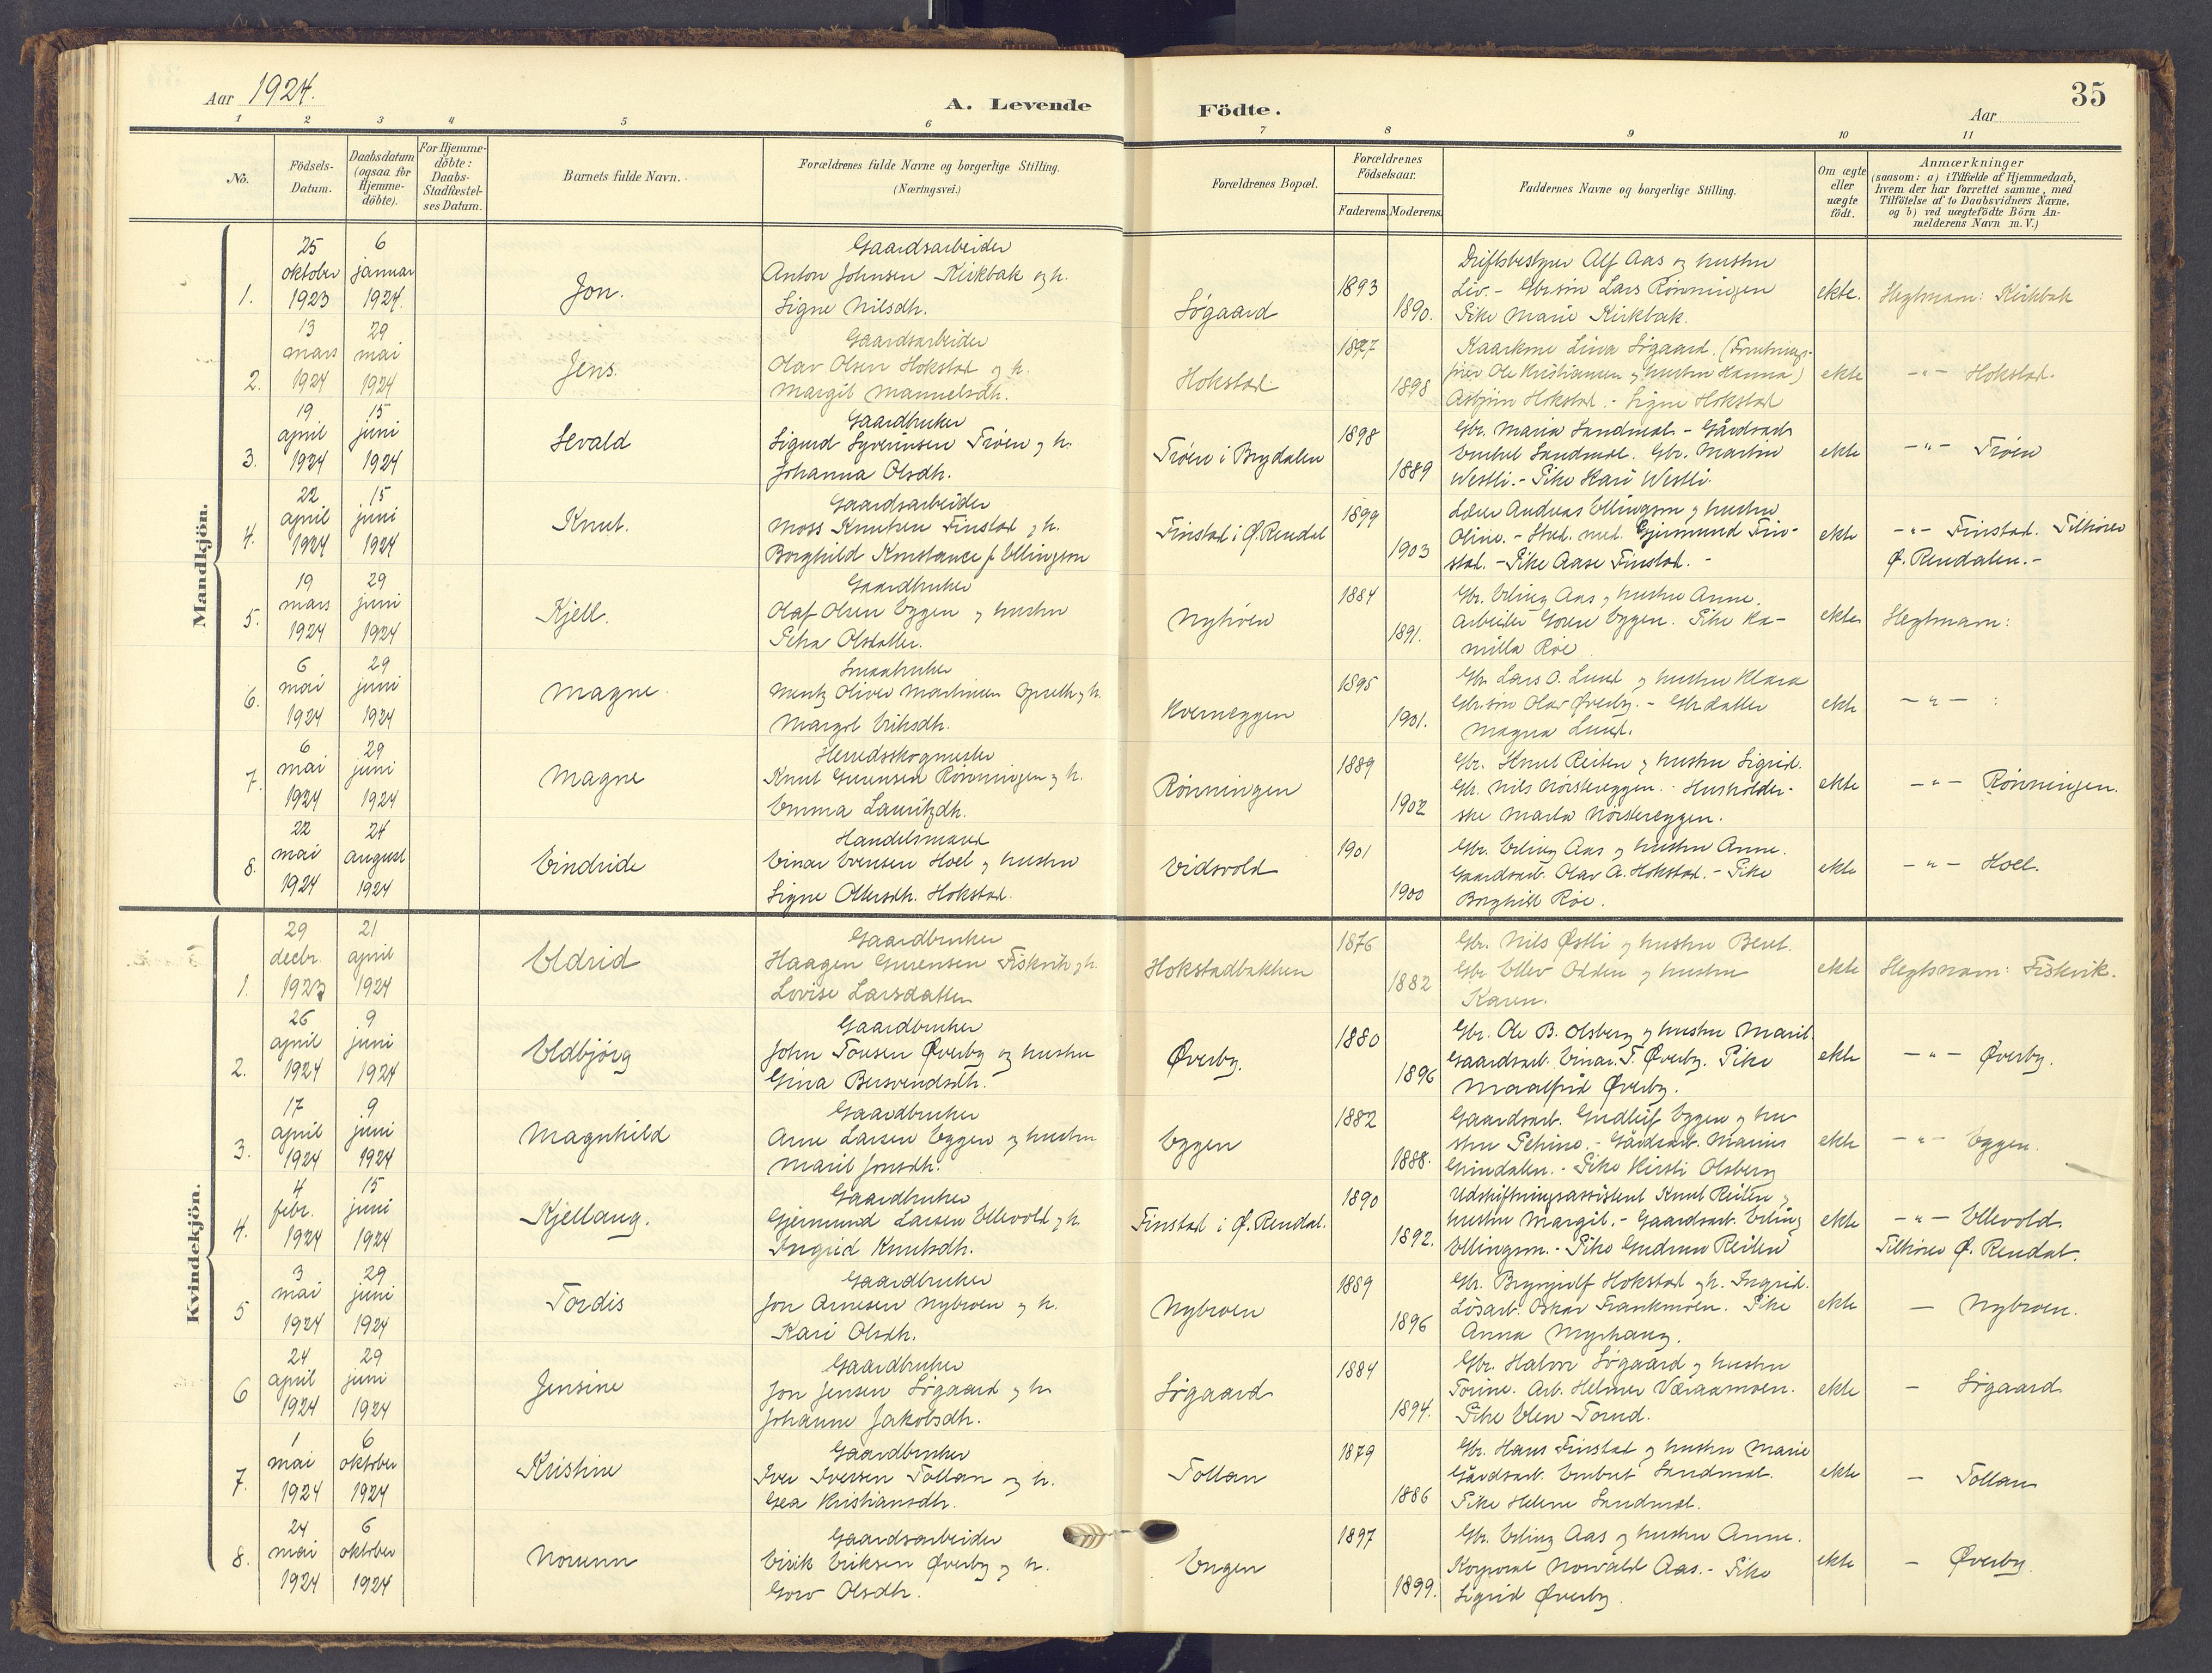 Aar 1924.
A. Levende
Födte.
Aar
35
1 2 3 4 5 6 7 8 9 10 11
No.
Födsels-
Datum.
Daabsdatum
(ogsaa for
Hjemme-
döbte).
For Hjemme-
döbte:
Daabs-
Stadfæstel-
ses Datum.
Barnets fulde Navn.
Forældrenes fulde Navne og borgerlige Stilling.
(Næringsvei.)
Forældrenes Bopæl.
Forældrenes
Födselsaar.
Faderens. Moderens.
Faddernes Navne og borgerlige Stilling.
Om ægte
eller
uægte
födt.
Anmærkninger
(saasom: a) i Tilfælde af Hjemmedaab,
hvem der har forrettet samme, med
Tilföielse af to Daabsvidners Navne,
og b) ved uægtefödte Börn An-
melderens Navn m. V.)
Mandkjön.
1.
25
oktober
1923
6
januar
1924.
Jon.
Gaardsarbeider
Anton Johnsen Kirkbak og h.
Signe Nilsdh.
Søgaard
1893
1890.
Driftsbestyrer Alf Aas og hustru
Liv. - Gbr.søn Lars Rønningen
Pike Marie Kirkbak.
ekte.
Slegtsnavn: Kirkbak
2.
13
mars
1924
29
mai
1924
Jens.
Gaardsarbeider
Olav Olsen Hokstad og h.
Margit Manuelsdh.
Hokstad
1897
1898
Kaarkone Lina Søgaard.
Ole Kristiansen og hustru Hanna)
Asbjørn Hokstad. - Signe Hokstad
ekte
-"- Hokstad.
3.
19
april
1924
15
juni
1924
Sevald
Gaardbruker
Sigurd Syverinsen Trøen og h.
Johanna Olsdh.
Trøen i Brydalen
1898
1889
Gbr. Maria Sandmæl - Gårdsarb.
Embret Sandmæl. Gbr. Martin
Westli. - Pike Kari Westli.
ekte
-"- Trøen
4.
22
april
1924
15
juni
1924
Knut.
Gaardsarbeider
Moss Knutsen Finstad og h.
Borghild Konstance f. Ellingsen
Finstad i Ø. Rendal
1899
1903
Lærer Andreas Ellingsen og hustru
Oline. - Stud. med. Gjermund Fin-
stad. - Pike Aase Finstad. -
ekte
-"- Finstad. Tilhører
Ø. Rendalen. -
5.
19
mars
1924
29
juni
1924
Kjell.
Gaardbruker
Olaf Olsen Eggen og hustru
Petra Olsdatter.
Nytrøen
1884
1891.
Gbr. Erling Aas og hustru Anne.
Arbeider Gorer Eggen. Pike Ka-
milla Røe.
ekte
Slegtsnavn:
6.
6
mai
1924
29
juni
1924
Magne
Smaabruker
Mentz Oliver Martinsen og h.
Margit Eriksdh.
Kverneggen
1895
1901.
Gbr. Lars O. Lund og hustru Klara
Gbr.søn Olav Øverby. - Gbr.datter
Magna Lund.
ekte
-"- :
7.
6
mai
1924
29
juni
1924
Magne
Herredsskogmester
Knut Gurensen Rønningen og h.
Emma Lauritzdh.
Rønningen
1889
1902
Gbr. Knut Reiten og hustru Sigrid.
Gbr. Nils Nørstereggen. - Husholder-
ske Marta Nørstereggen.
ekte
-"- Rønningen.
8.
22
mai
1924
24
august
1924
Eindride
Handelsmand
Einar Evensen Hoel og hustru
Signe Ottersdh. Hokstad.
Eidsvold
1901
1900
Gbr. Erling Aas og hustru Anne.
Gaardsarb. Olav A. Hokstad. - Pike
Borghild Røe.
ekte
-"- Hoel.
Kvindekjön.
1.
29
decbr.
1923
21
april
1924
Eldrid
Gaardbruker
Haagen Gurensen Fiskvik og h.
Lovise Larsdatter
Hokstadbakken
1876
1882
Gbr. Nils Østli og hustru Beret.
Gbr. Ellev Odden og hustru
Karen.
ekte
Slegtsnavn: Fiskvik.
2.
26
april
1924
9
juni
1924
Eldbjørg
Gaardbruker
John Tonsen Øverby og hustru
Gina Bersvendsdh.
Øverby.
1880
1896
Gbr. Ole B. Olsberg og hustru Marit.
Gaardsarb. Einar T. Øverby. Pike
Maalfrid Øverby.
ekte
-"- Øverby.
3.
17
april
1924
9
juni
1924
Magnhild
Gaardbruker
Arne Larsen Eggen og hustru
Marit Jonsdh.
Eggen
1882
1888.
Gaardsarb. Gudleif Eggen og hu-
stru Petrine. - Gårdsarb. Marius
Grindalen. - Pike Kirsti Olsberg
ekte
-"- Eggen.
4.
4
febr.
1924
15
juni
1924
Kjellaug.
Gaardbruker
Gjermund Larsen Ellevold og h.
Ingrid Knutsdh.
Finstad i Ø. Rendal.
1890
1892.
Udskiftningsassistent Knut Reiten og
hustru Margit. - Gaardsarb. Erling
Ellingsen. - Pike Gudrun Reiten
ekte
-"- Ellevold.
Tilhører Ø. Rendal.
5
3
mai
1924
29
juni
1924
Tordis
Gaardbruker
Jon Arnesen Nybroen og h.
Kari Olsdh.
Nybroen
1889
1896
Gbr. Brynjulf Hokstad og h. Ingrid.
Løsarb. Oskar Frankmoen. Pike
Anna Myrhaug.
ekte
- Nybroen.
6
24
april
1924
29
juni
1924
Jensine
Gaardbruker
Jon Jensen Søgaard og h.
Johanne Jakobsdh.
Søgaard
1884
1894.
Gbr. Halvor Søgaard og hustru
Torine. Arb. Helmer Væraamoen.
Pike Elen Tomd.
ekte
- Søgaard
7.
1
mai
1924
6
oktober
1924
Kristine
Gaardbruker
Iver Iversen Tollan og h.
Gea Kristiansdh.
Tollan
1879
1886
Gbr. Hans Finstad og hustru Marie
Gårdsarb. Embret Sandmæl.
Pike Helene Sandmæl.
ekte
- Tollan
8.
24
mai
1924
6
oktober
1924
Norunn
Gaardsarbeider
Eirik Eriksen Øverby og h.
Goro Olsdh.
Engen
1897
1899.
Gbr. Erling Aas og hustru Anne.
Korporal Norvald Aas. - Pike
Sigrid Øverby.
ekte
- Øverby.